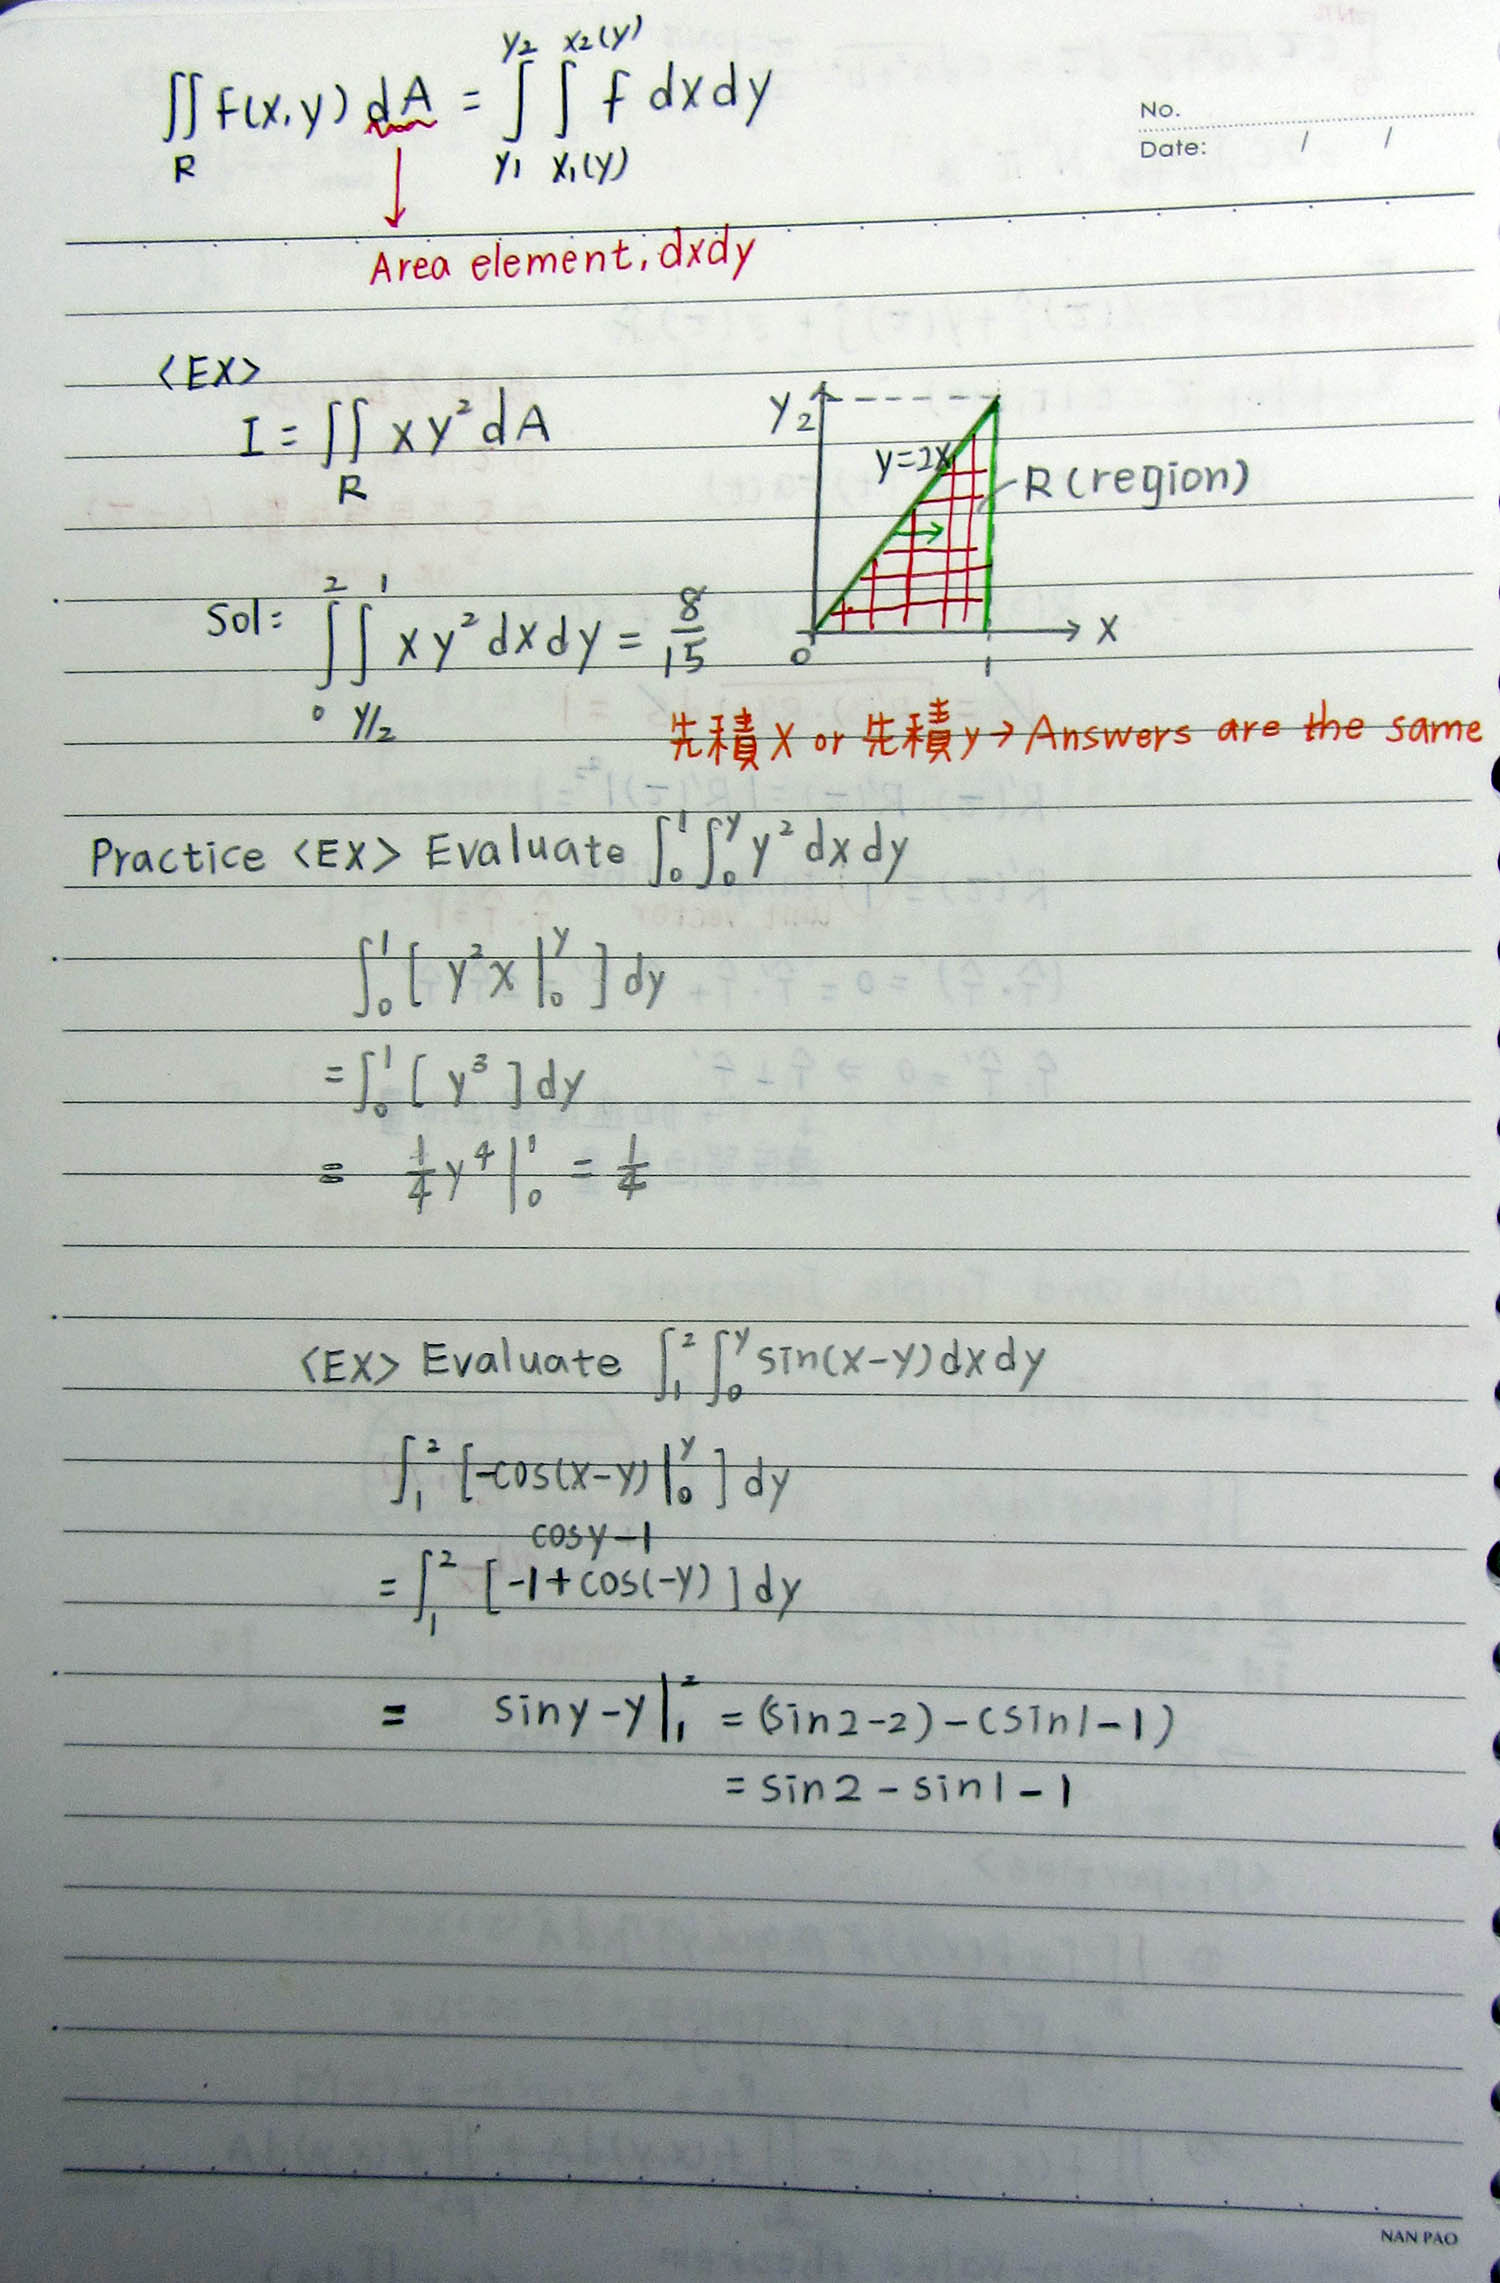 ∬_R f(x,y) dA = ∫_{y1}^{y2} ∫_{x1(y)}^{x2(y)} f dxdy
No.
Date: / /
Area element, dxdy
<EX>
I = ∬_R xy² dA
y 2
y=2x
R(region)
0 1 x
Sol: ∫_0^2 ∫_{y/2}^1 xy² dxdy = 8/15
先積x or 先積y → Answers are the same
Practice <EX> Evaluate ∫_0^1 ∫_0^y y² dxdy
∫_0^1 [ y²x |_0^y ] dy
= ∫_0^1 [ y³ ] dy
= 1/4 y⁴ |_0^1 = 1/4
<EX> Evaluate ∫_1^2 ∫_0^y sin(x-y) dxdy
∫_1^2 [ -cos(x-y) |_0^y ] dy
cosy-1
= ∫_1^2 [ -1+cos(-y) ] dy
= siny-y |_1^2 = (sin2-2)-(sin1-1)
= sin2 - sin1 - 1
NAN PAO